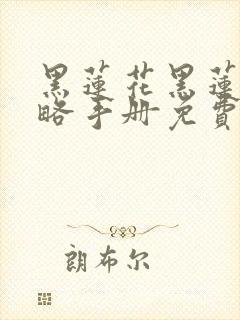 黑蓮花黑蓮
略手册免費
朗布尔